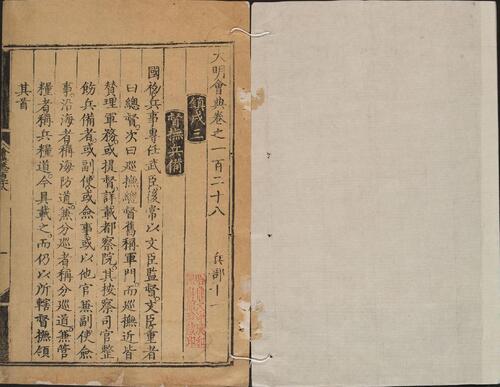 大明會典卷之一百二十八 兵部十一
鎮戍三
督撫兵備
國初兵事專任武臣後常以文臣監督文臣重者
曰總督次曰巡撫總督舊稱軍門而巡撫近皆
贊理軍務或提督詳載都察院其按察司官整
飭兵備者或副使或僉事或以他官兼副使僉
事沿海者稱海防道兼分巡者稱分巡道兼管
糧者稱兵糧道今具載之而仍以所轄督撫領
其首